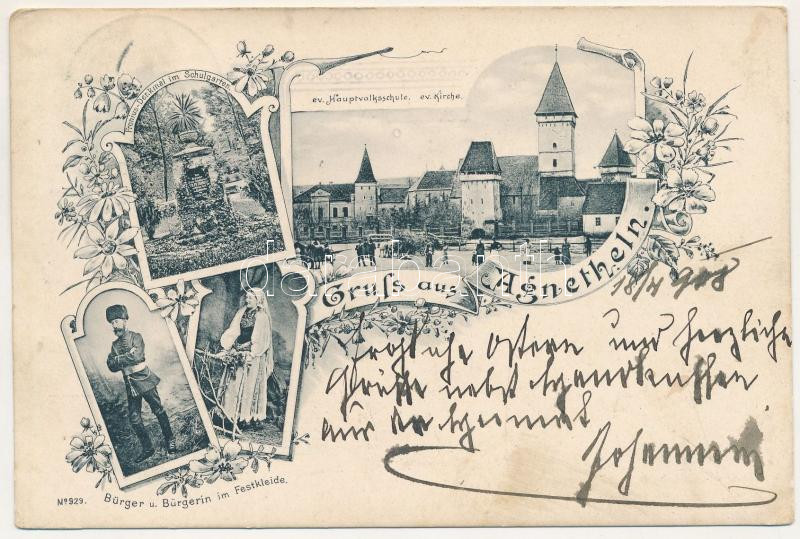 Fronius-Denkmal im Schulgarten
ev. Hauptvolksschule. ev. Kirche.
Gruss aus Agnetheln.
18/4 908
Fröhliche Ostern und herzliche
Grüsse nebst
aus der Heimat
Nº 929. Bürger u. Bürgerin im Festkleide.
darabanth